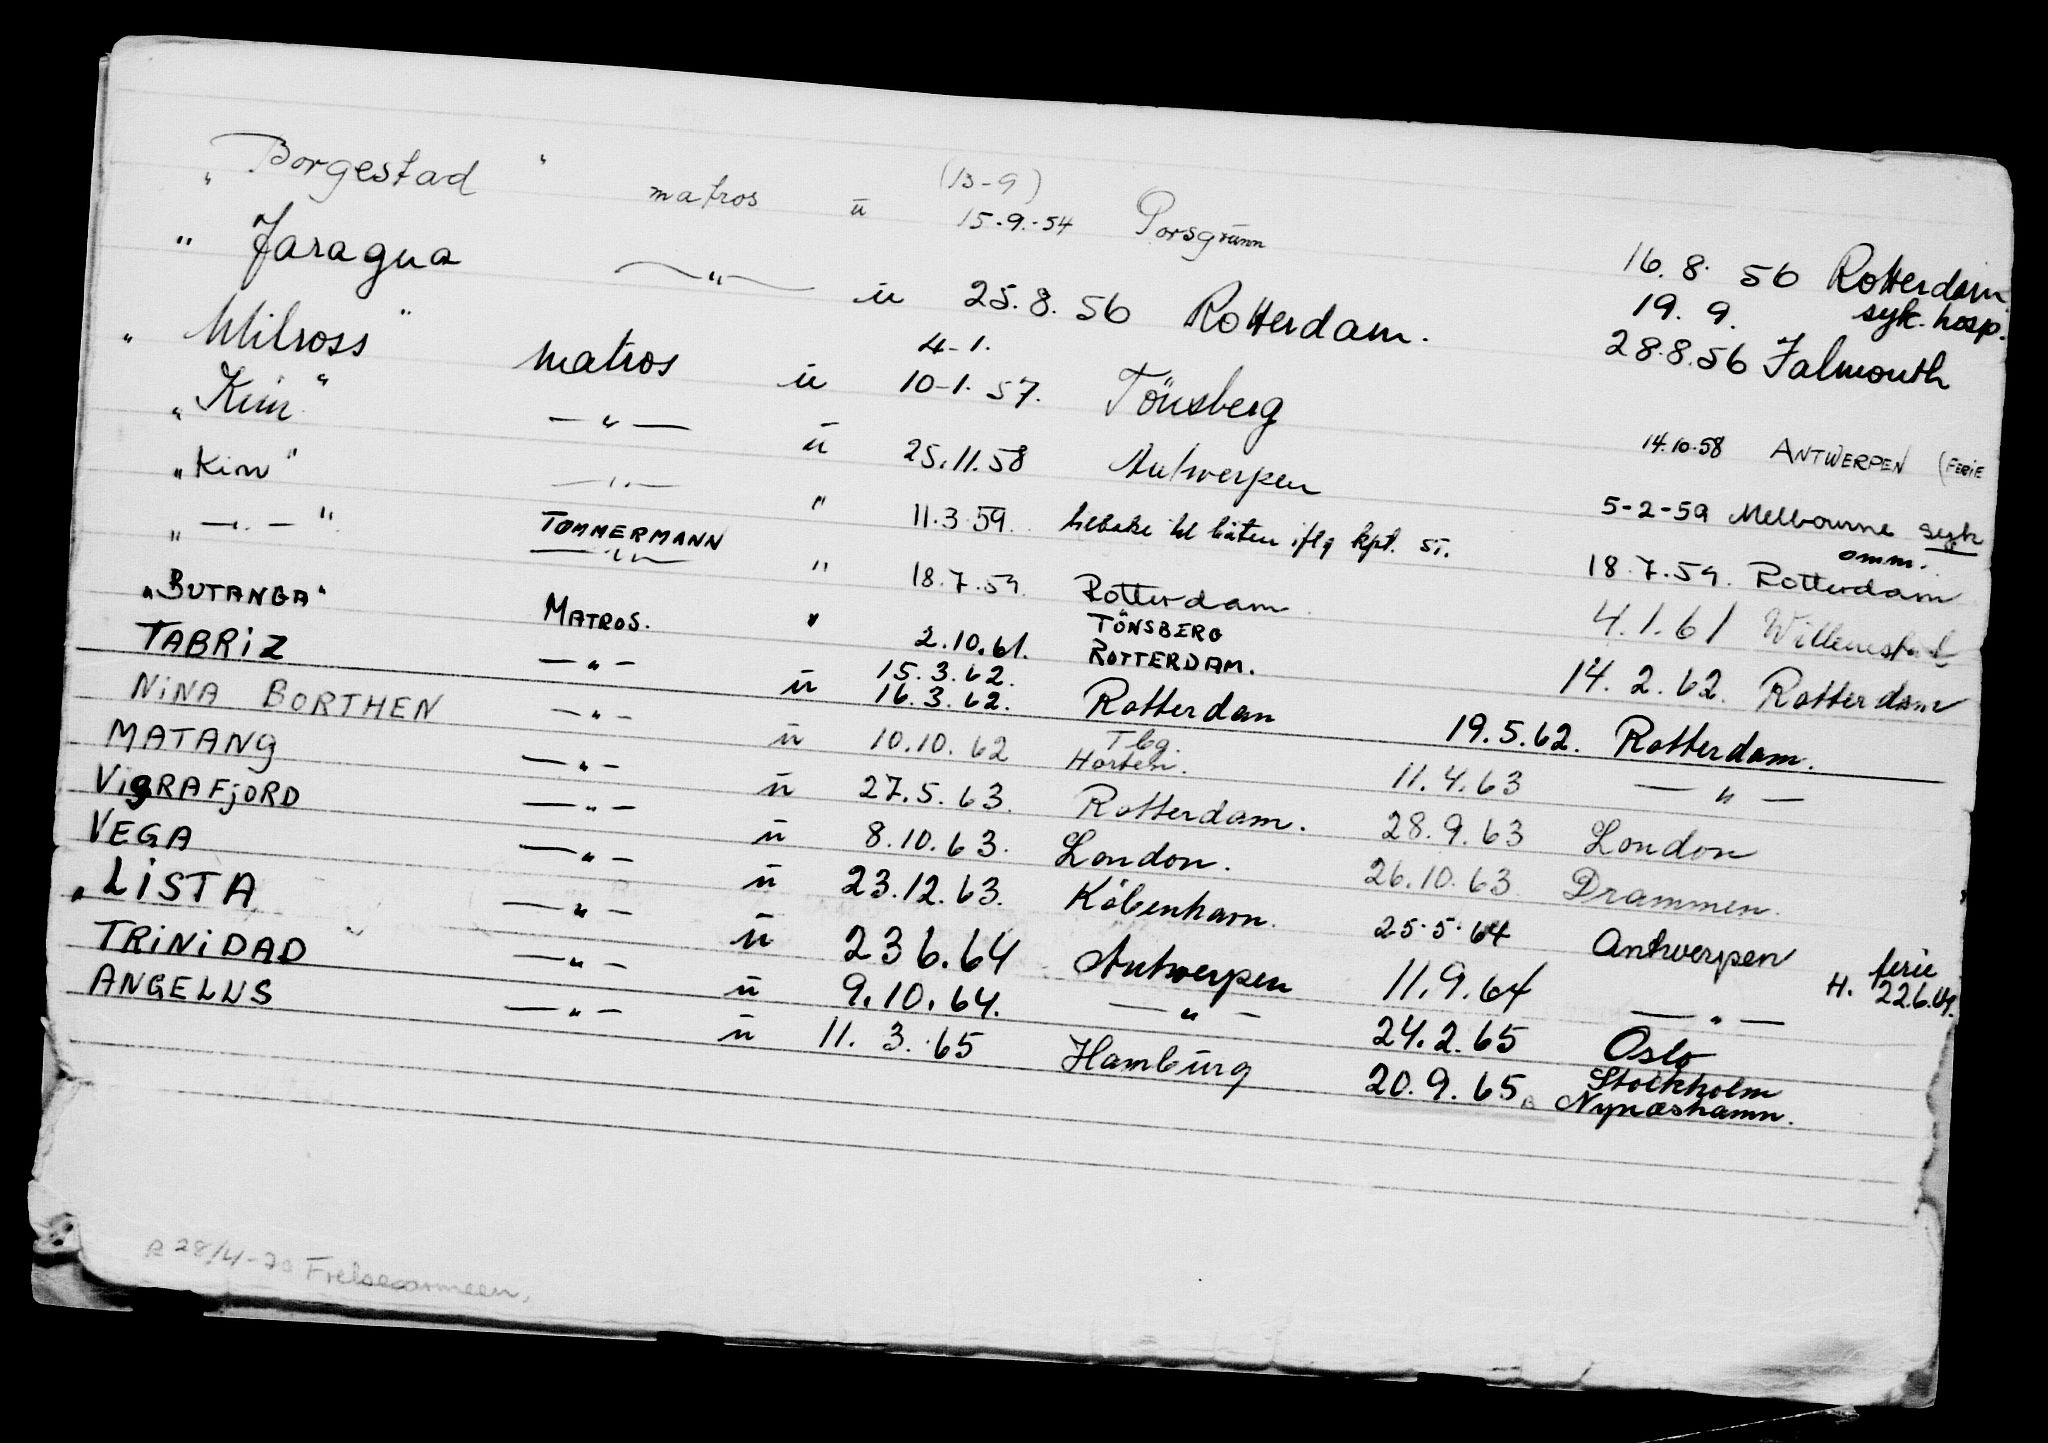 „ Borgestad " matros u (13-9) 15.9.54 Porsgrunn 16.8.56 Rotterdam
„ Jaragua — " — u 25.8.56 Rotterdam. 19.9. syk. hosp.
„ Milross " matros u 4-1. 10-1.57. Tönsberg 28.8.56 Falmouth
„ Kim " — " — u 25.11.58 Antwerpen 14.10.58 ANTWERPEN (FERIE
„ Kim " — " — " 11.3.59. tilbake til båten iflg kpt. 5-2-59 Melbourne syk
omm.
„ — " — " TØMMERMANN — " — " 18.7.59. Rotterdam 18.7.59. Rotterdam
„BUTANGA" MATROS. " 2.10.61. TÖNSBERG 4.1.61 Willemstad
TABRIZ — " — u 15.3.62. 16.3.62. ROTTERDAM. Rotterdam 14.2.62. Rotterdam
NINA BORTHEN — " — u 10.10.62 Tbg. Horten. 19.5.62. Rotterdam.
MATANG — " — u 27.5.63. Rotterdam. 11.4.63 — " —
VIGRAFJORD — " — u 8.10.63. London. 28.9.63 London
VEGA — " — u 23.12.63. København. 26.10.63 Drammen.
„ LISTA — " — u 23 6.64 Antwerpen 25.5.64 Antwerpen ferie
H. 22.6.64.
TRINIDAD — " — u 9.10.64. — " — 11.9.64 — " —
ANGELUS — " — u 11.3.65 Hamburg 24.2.65 Oslo
20.9.65 Stockholm
Nynæshamn.
R 28/4-70 Frelsesarmeen.